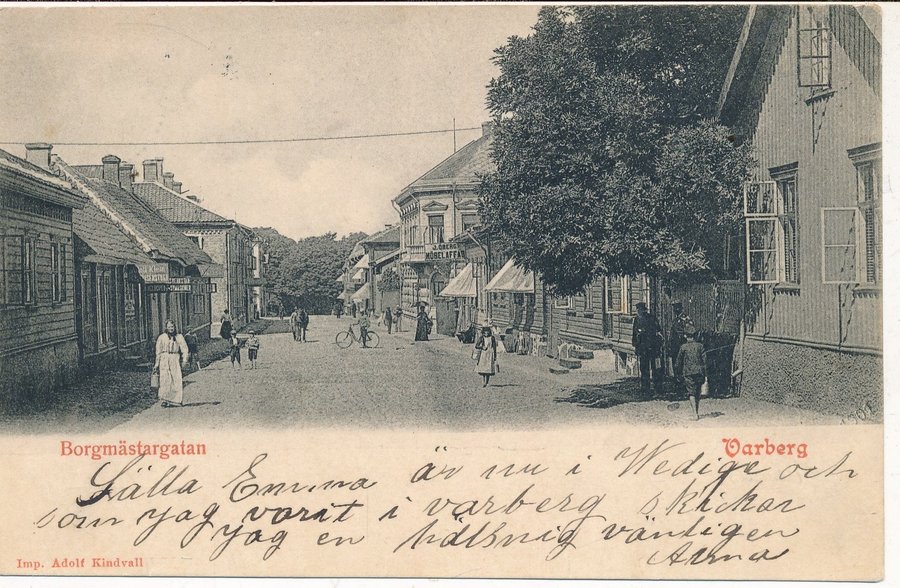 J. G. BERG
MÖBELAFFÄR
Borgmästargatan
Varberg
Sälla Emma är nu i Wedige och
som yag varit i varberg skickar
yag en hälsnig väntigen
Anna
Imp. Adolf Kindvall